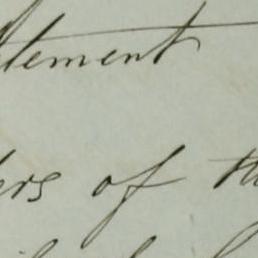 tement
ers of th